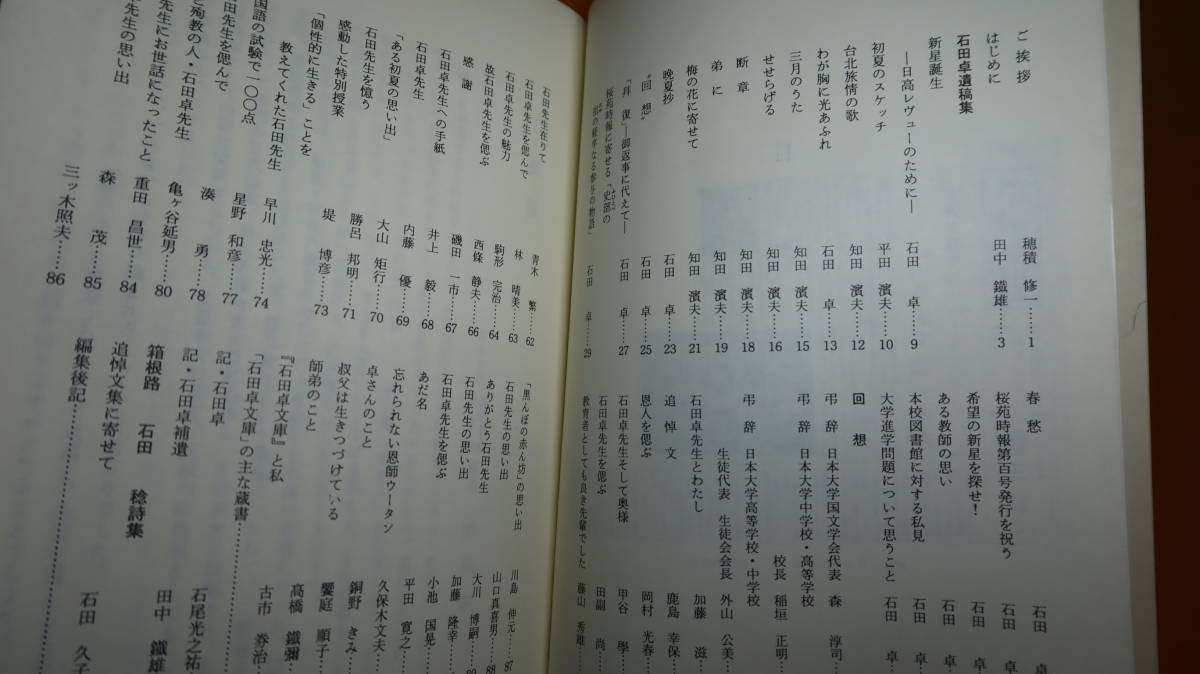 ご挨拶 穂積 修一……1
はじめに 田中 鐵雄……3
石田卓遺稿集
新星誕生
―日高レヴューのために― 石田 卓……9
初夏のスケッチ 平田 濱夫……10
台北旅情の歌 知田 濱夫……12
わが胸に光あふれ 石田 卓……13
三月のうた 知田 濱夫……15
せせらげる 知田 濱夫……16
断章 知田 濱夫……18
弟に 知田 濱夫……19
梅の花に寄せて 知田 濱夫……21
晩夏抄 石田 卓……23
“回想” 石田 卓……25
「拝復」―御返事に代えて― 石田 卓……27
桜苑時報に寄せる「史部の
石田 卓……29
春愁 石田 卓
桜苑時報第百号発行を祝う 石田 卓
希望の新星を探せ! 石田 卓
ある教師の思い 石田 卓
本校図書館に対する私見 石田 卓
大学進学問題について思うこと 石田 卓
回想
弔辞 日本大学国文学会代表 森 淳司
弔辞 日本大学中学校・高等学校
校長 稲垣 正明
弔辞 日本大学高等学校・中学校
生徒代表 生徒会会長 外山 公美
石田卓先生とわたし 加藤 滋
追悼文 鹿島 幸保
恩人を偲ぶ 岡村 光春
石田卓先生そして奥様 甲谷 學
石田卓先生を偲ぶ 田副 尚
教育者としても良き先輩でした 藤山 秀雄
石田先生在りて 青木 繁……62
石田卓先生を偲んで 林 晴美……63
石田卓先生の魅力 駒形 完治……64
故石田卓先生を偲ぶ 西條 静夫……66
感謝 磯田 一市……67
石田卓先生への手紙 井上 毅……68
石田卓先生 内藤 優……69
「ある初夏の思い出」 大山 矩行……70
石田先生を憶う 勝呂 邦明……71
感動した特別授業 堤 博彦……73
「個性的に生きる」ことを
教えてくれた石田先生 早川 忠光……74
国語の試験で一〇〇点 星野 和彦……77
先生を偲んで 湊 勇……78
殉教の人・石田卓先生 亀ヶ谷延男……80
先生にお世話になったこと 重田 昌世……84
先生の思い出 森 茂……85
三ッ木照夫……86
「黒んぼの赤ん坊」の思い出 川島 伸元……87
石田先生の思い出 山口真喜男……88
ありがとう石田先生 大川 博嗣
石田先生の思い出 加藤 隆幸
石田卓先生を偲ぶ 小池 国晃
あだ名 平田 寛之
忘れられない恩師ウータン 久保木文夫
卓さんのこと 銅野 きみ
叔父は生きつづけている 饗庭 順子
師弟のこと 高橋 鐵彌
『石田卓文庫』と私 古市 券治
「石田卓文庫」の主な蔵書……
記・石田卓 石尾光之祐
記・石田卓補遺 田中 鐵雄
箱根路 石田 稔詩集
追悼文集に寄せて 石田 久子
編集後記……